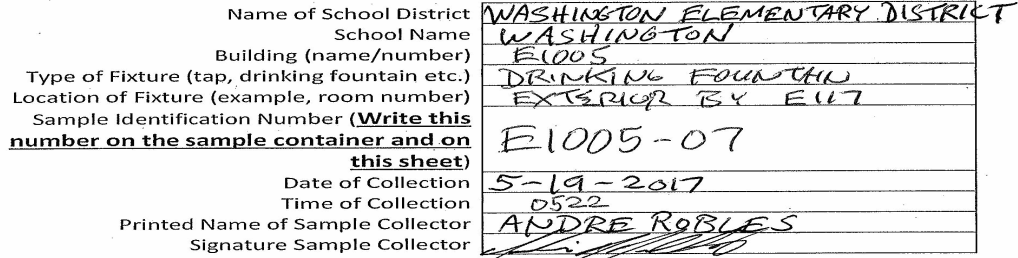 Name of School District WASHINGTON ELEMENTARY DISTRICT
School Name WASHINGTON
Building (name/number) E1005
Type of Fixture (tap, drinking fountain etc.) DRINKING FOUNTAIN
Location of Fixture (example, room number) EXTERIOR BY E117
Sample Identification Number (Write this
number on the sample container and on E1005-07
this sheet)
Date of Collection 5-19-2017
Time of Collection 0522
Printed Name of Sample Collector ANDRE ROBLES
Signature Sample Collector